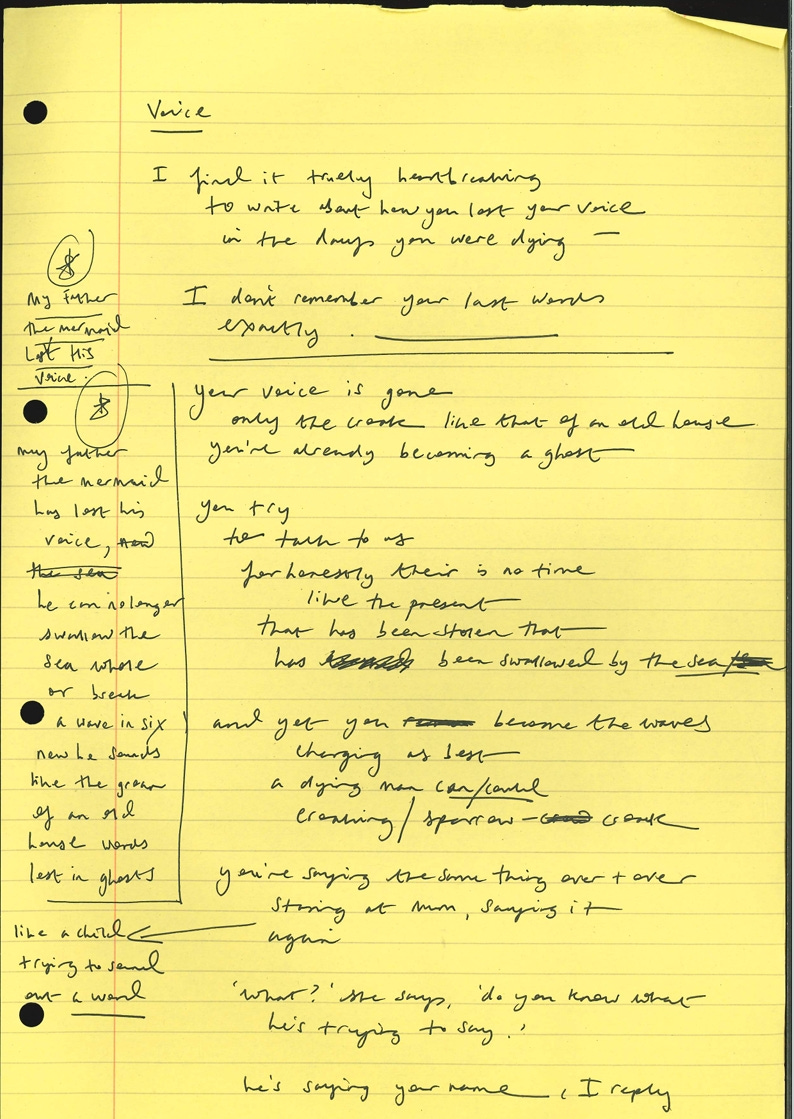 Voice
I find it truely heartbreaking
to write about how you lost your voice
in the days you were dying —
I don't remember your last words
exactly.
your voice is gone
only the croak like that of an old house
you're already becoming a ghost
you try
to talk to us
for honestly their is no time
like the present
that has been stolen that
has been swallowed by the sea/
and yet you become the waves
charging as best
a dying man can/could
croaking/sparrow- croak
you're saying the same thing over + over
staring at mum, saying it
again
'what?' she says, 'do you know what
he's trying to say.'
he's saying your name, I reply
My Father
the mermaid
Lost His
Voice.
my father
the mermaid
has lost his
voice, and
the sea
he can no longer
swallow the
sea whole
or break
a wave in six
now he sounds
like the groan
of an old
house words
lost in ghosts
like a child
trying to sound
out a word